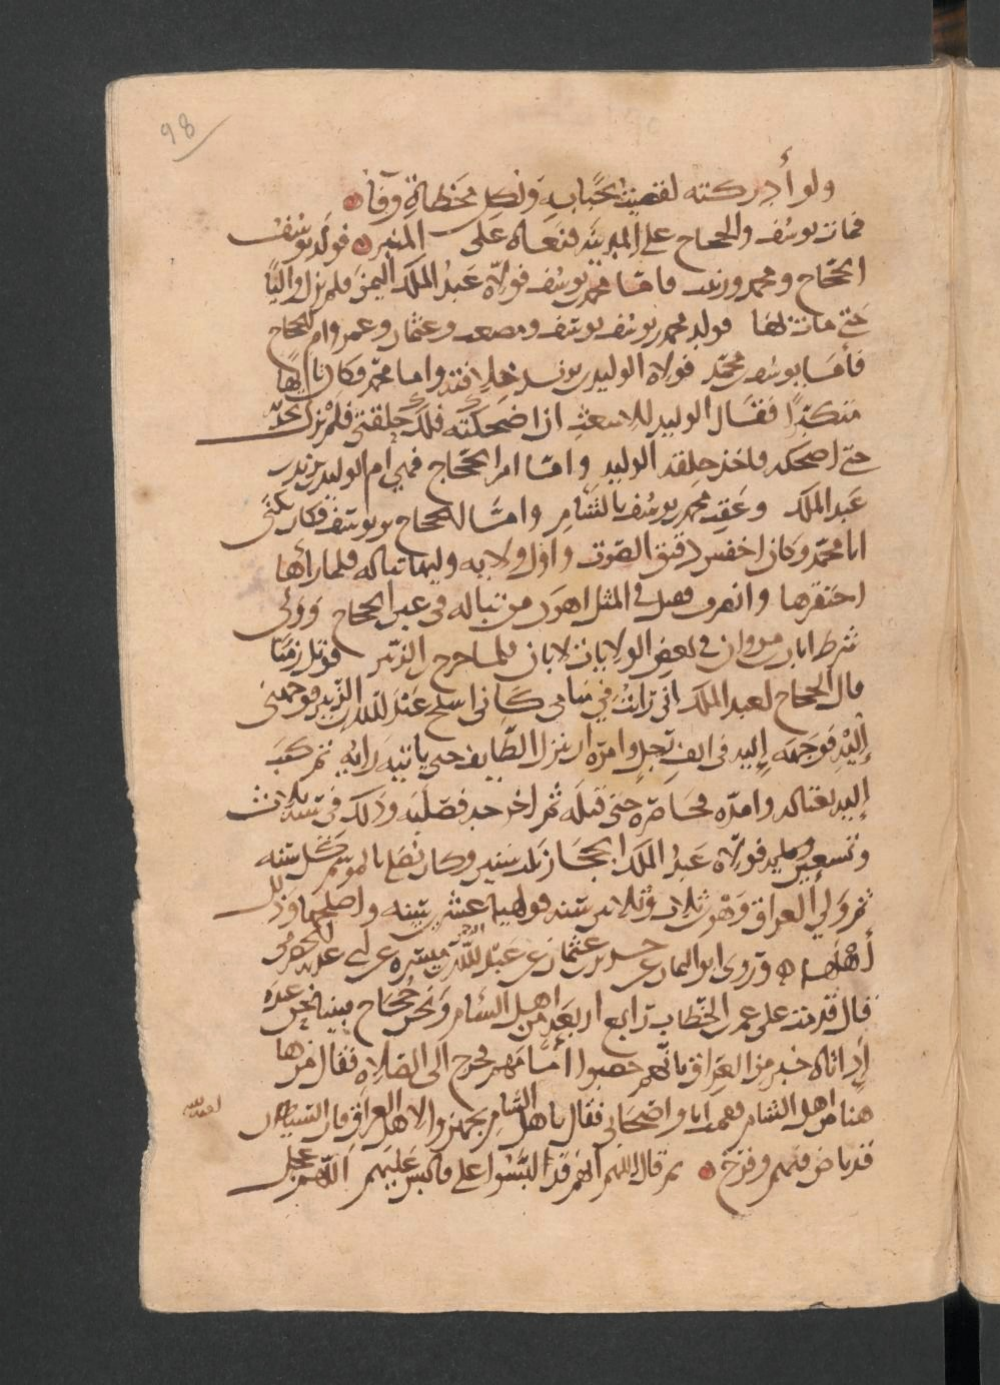 98
ولو أدركته لفصيت بحباب ولكل مخطاة وقا
فمات يوسف والحجاج على المدينة فنعاه على المنبر فولد يوسف
الحجاج ومحمد وزينب فاما محمد بن يوسف فولاه عبد الملك اليمن فلم يزل واليا
حتى مات بها فولد محمد بن يوسف يوسف ومصعب وعثمان وعمر وام الحجاج
فأما يوسف بن محمد فولاه الوليد بن يزيد خلافته واما محمد فكان تايها
متكبرا فقال الوليد للاشعث ان اضحكته فلك خلعتي فلم يزل يحدثه
حتى اضحكه فاخذ خلعة الوليد واما ام الحجاج فهي ام الوليد بن يزيد بن
عبد الملك وعقب محمد بن يوسف بالشام واما الحجاج بن يوسف فكان يكنى
ابا محمد وكان اخفش دقيق الصوت واول ولايه وليها تباله فلما رأها
احتقرها وانصرف فقيل في المثل اهون من تباله في عبر الحجاج وولي
شرط ابان بن مروان في بعض الولايات لابان فلما خرج ابن الزبير فوتل زمنا
قال الحجاج لعبد الملك اني رايت في منامي كاني اسلخ عبد الله بن الزبير فوجهني
إليه فوجهه إليه في الف رجل وامره ان ينزل الطايف حتى ياتيه رايه ثم كتب
إليه بقتاله وامده فحاصره حتى قتله ثم اخرجه فصلبه وذلك في سنة ثلاث
وسبعين فولاه عبد الملك الحجاز ثلث سنين وكان يصلي بالموسم كل سنه
ثم ولي العراق وهو ابن ثلاث وثلاثين سنه فوليها عشرين سنه واصلحها وذلل
أهلها وروى ابو اليمان عن حريز بن عثمان عن عبد الرحمن بن ميسره عن ابي عذبه الحضرمي
قال قدمت على عمر بن الخطاب رابع اربعه من اهل الشام ونحن حجاج فبينا نحن عنده
إذ اتاه خبر من العراق بانهم حصبوا امامهم فخرج الى الصلاه فقال من ها
هنا من اهل الشام فقمت انا واصحابي فقال يا اهل الشام تجهزوا لاهل العراق فان الشيطان
قد باض فيهم وفرخ ثم قال اللهم انهم قد البسوا علي فالبس عليهم اللهم عجل